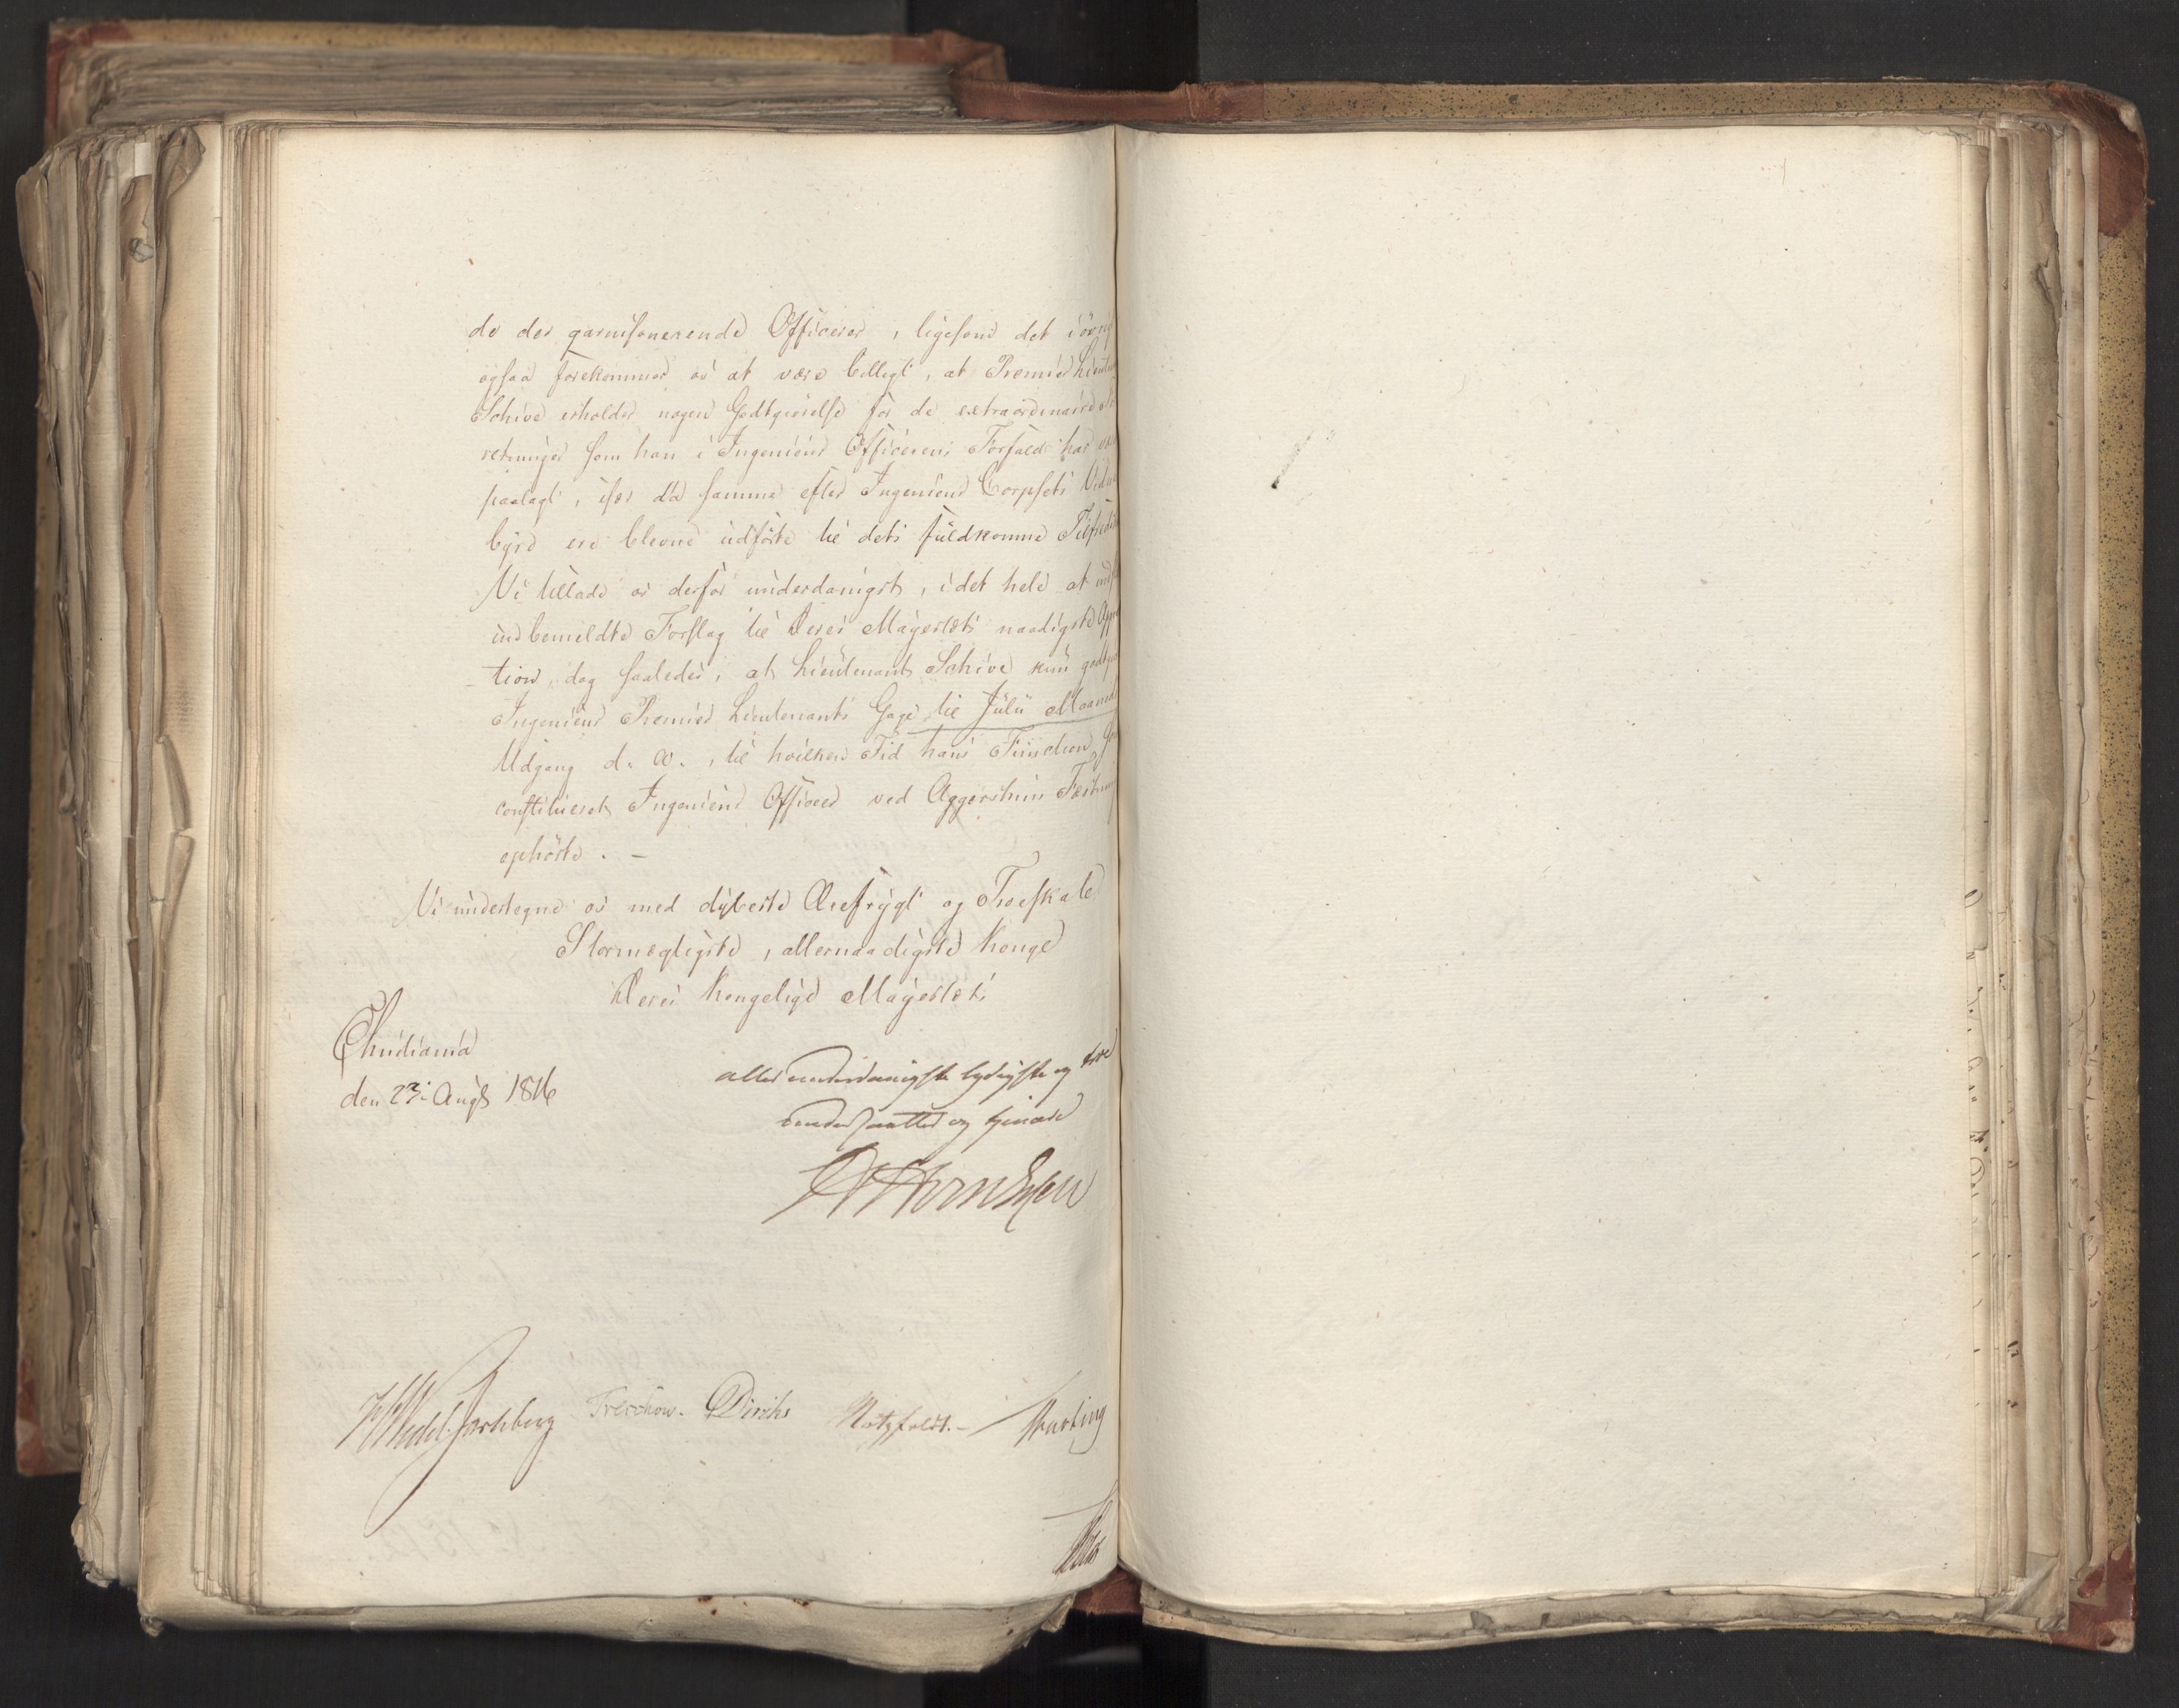 de der garnisonerende Officerer, ligesom det iøvrig
ogsaa forekommer os at være billigt, at Premier Lieut
Schive erholder nogen Godtgiørelse for de extraordinaire
retninger som han i Ingenieur Officerens Forfald har
paalagt, især da samme efter Ingenieur Corpsets
byrd ere blevne udførte til dets fuldkomne Tilfreds
Vi tillade os derfor underdanigst, i det hele at ind
indbemeldte Forslag til Deres Majestæts naadigste App
tion, dog saaledes, at Lieutenant Schive kun godtgiø
Ingenieur Premier Lieutenants Gage til Julii Maaned
Udgang d. A., til hvilken Tid hans Function
constitueret Ingenieur Officeer ved Aggershuus Fæstning
ophørte. —
Vi undertegne os med dybeste Ærefrygt og Troeskab
Stormægtigste, allernaadigste Konge
Deres Kongelige Majestæts
Christiania
den 23: Augt 1816
allerunderdanigste lydigste og troe
undersaatter og tjenere
Wedel Jarlsberg Treschow. Diriks Motzfeldt. —